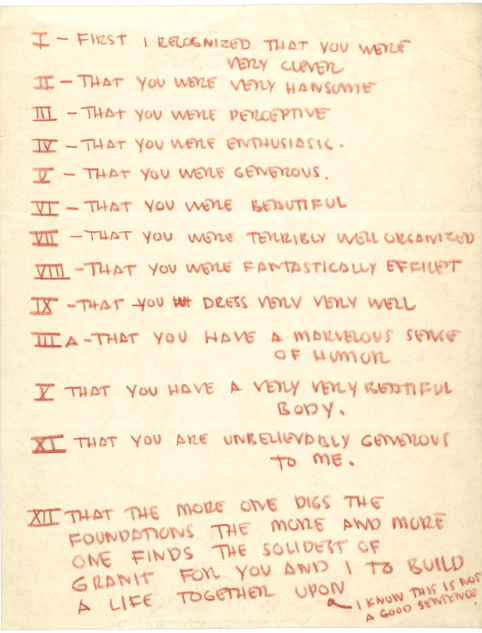 I - FIRST I RECOGNIZED THAT YOU WERE
VERY CLEVER
II - THAT YOU WERE VERY HANSOME
III - THAT YOU WERE PERCEPTIVE
IV - THAT YOU WERE ENTHUSIASIC.
V - THAT YOU WERE GENEROUS.
VI - THAT YOU WERE BEAUTIFUL
VII - THAT YOU WERE TERRIBLY WELL ORGANIZED
VIII - THAT YOU WERE FANTASTICALLY EFFICENT
IX - THAT YOU DRESS VERY VERY WELL
IIII A - THAT YOU HAVE A MARVELOUS SENSE
OF HUMOR
X THAT YOU HAVE A VERY VERY BEATIFUL
BODY.
XI THAT YOU ARE UNBELIEVABLY GENEROUS
TO ME.
XII THAT THE MORE ONE DIGS THE
FOUNDATIONS THE MORE AND MORE
ONE FINDS THE SOLIDEST OF
GRANIT FOR YOU AND I TO BUILD
A LIFE TOGETHER UPON
I KNOW THIS IS NOT
A GOOD SENTENCE.